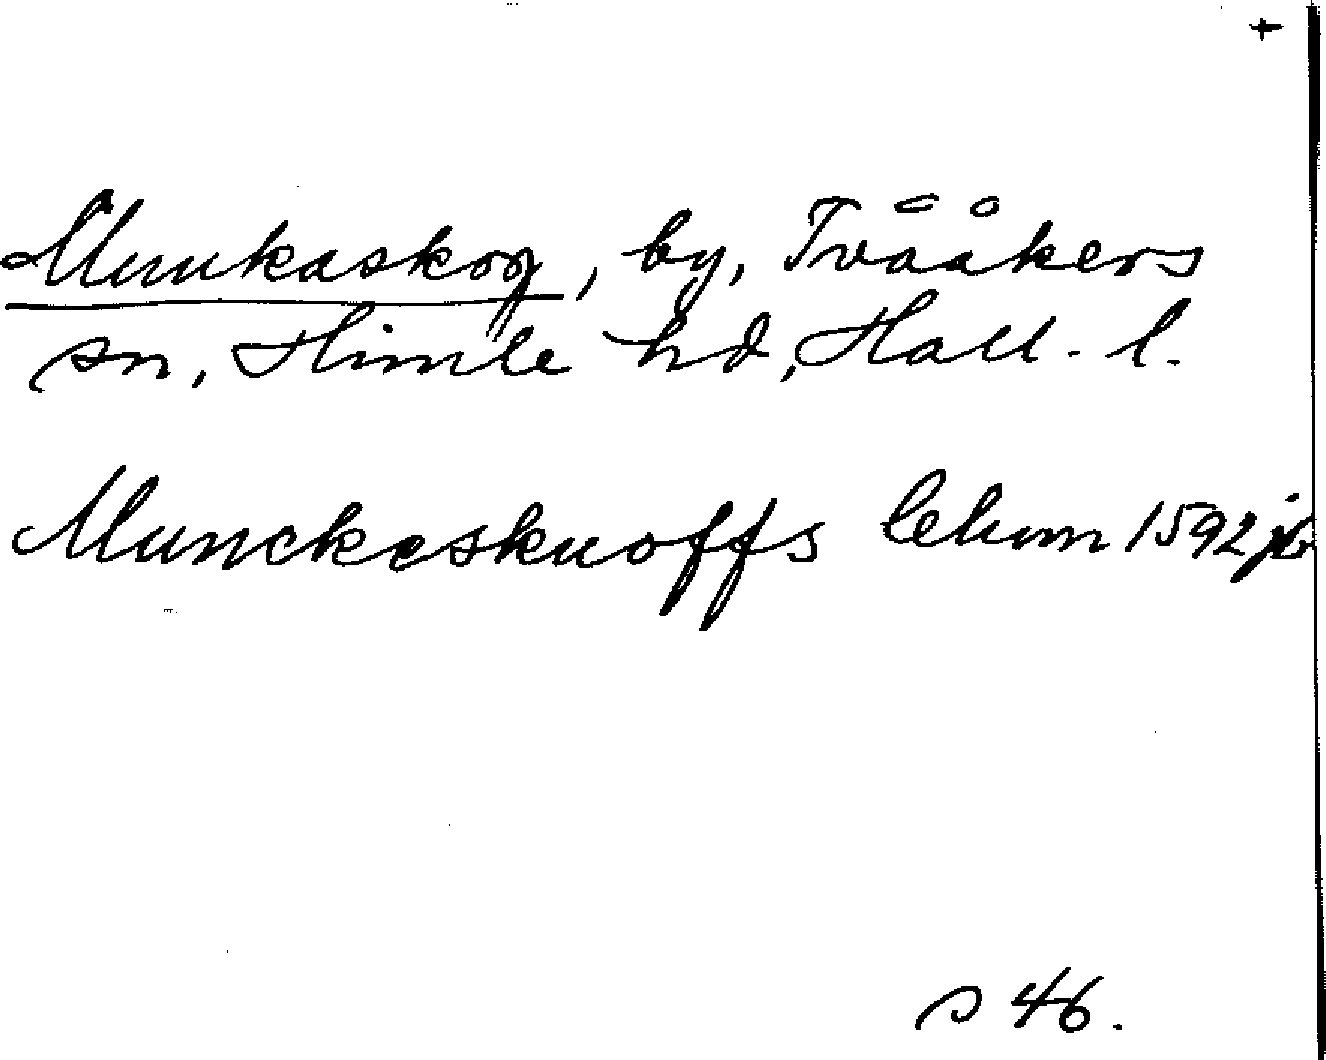 +
Munkaskog, by, Tvååkers
sn, Himle hd, Hall. l.
Munckeskuoffs lehnn 1592 jb
s 46.